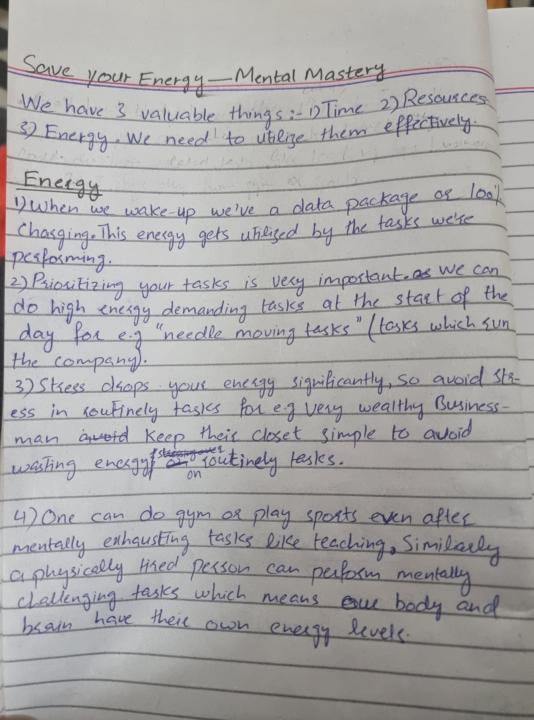 Save your Energy — Mental Mastery
We have 3 valuable things :- 1) Time 2) Resources
3) Energy. We need to utilize them effectively.
Energy
1) When we wake-up we've a data package or 100%
Charging. This energy gets utilized by the tasks we're
performing.
2) Prioritizing your tasks is very important. as We can
do high energy demanding tasks at the start of the
day for e.g "needle moving tasks" (tasks which run
the company).
3) Stress drops your energy significantly, so avoid str-
ess in routinely tasks for e.g very wealthy Business-
man avoid keep their closet simple to avoid
wasting energy routinely tasks.
on
4) One can do gym or play sports even after
mentally exhausting tasks like teaching, Similarly
a physically tired person can perform mentally
challenging tasks which means our body and
brain have their own energy levels.